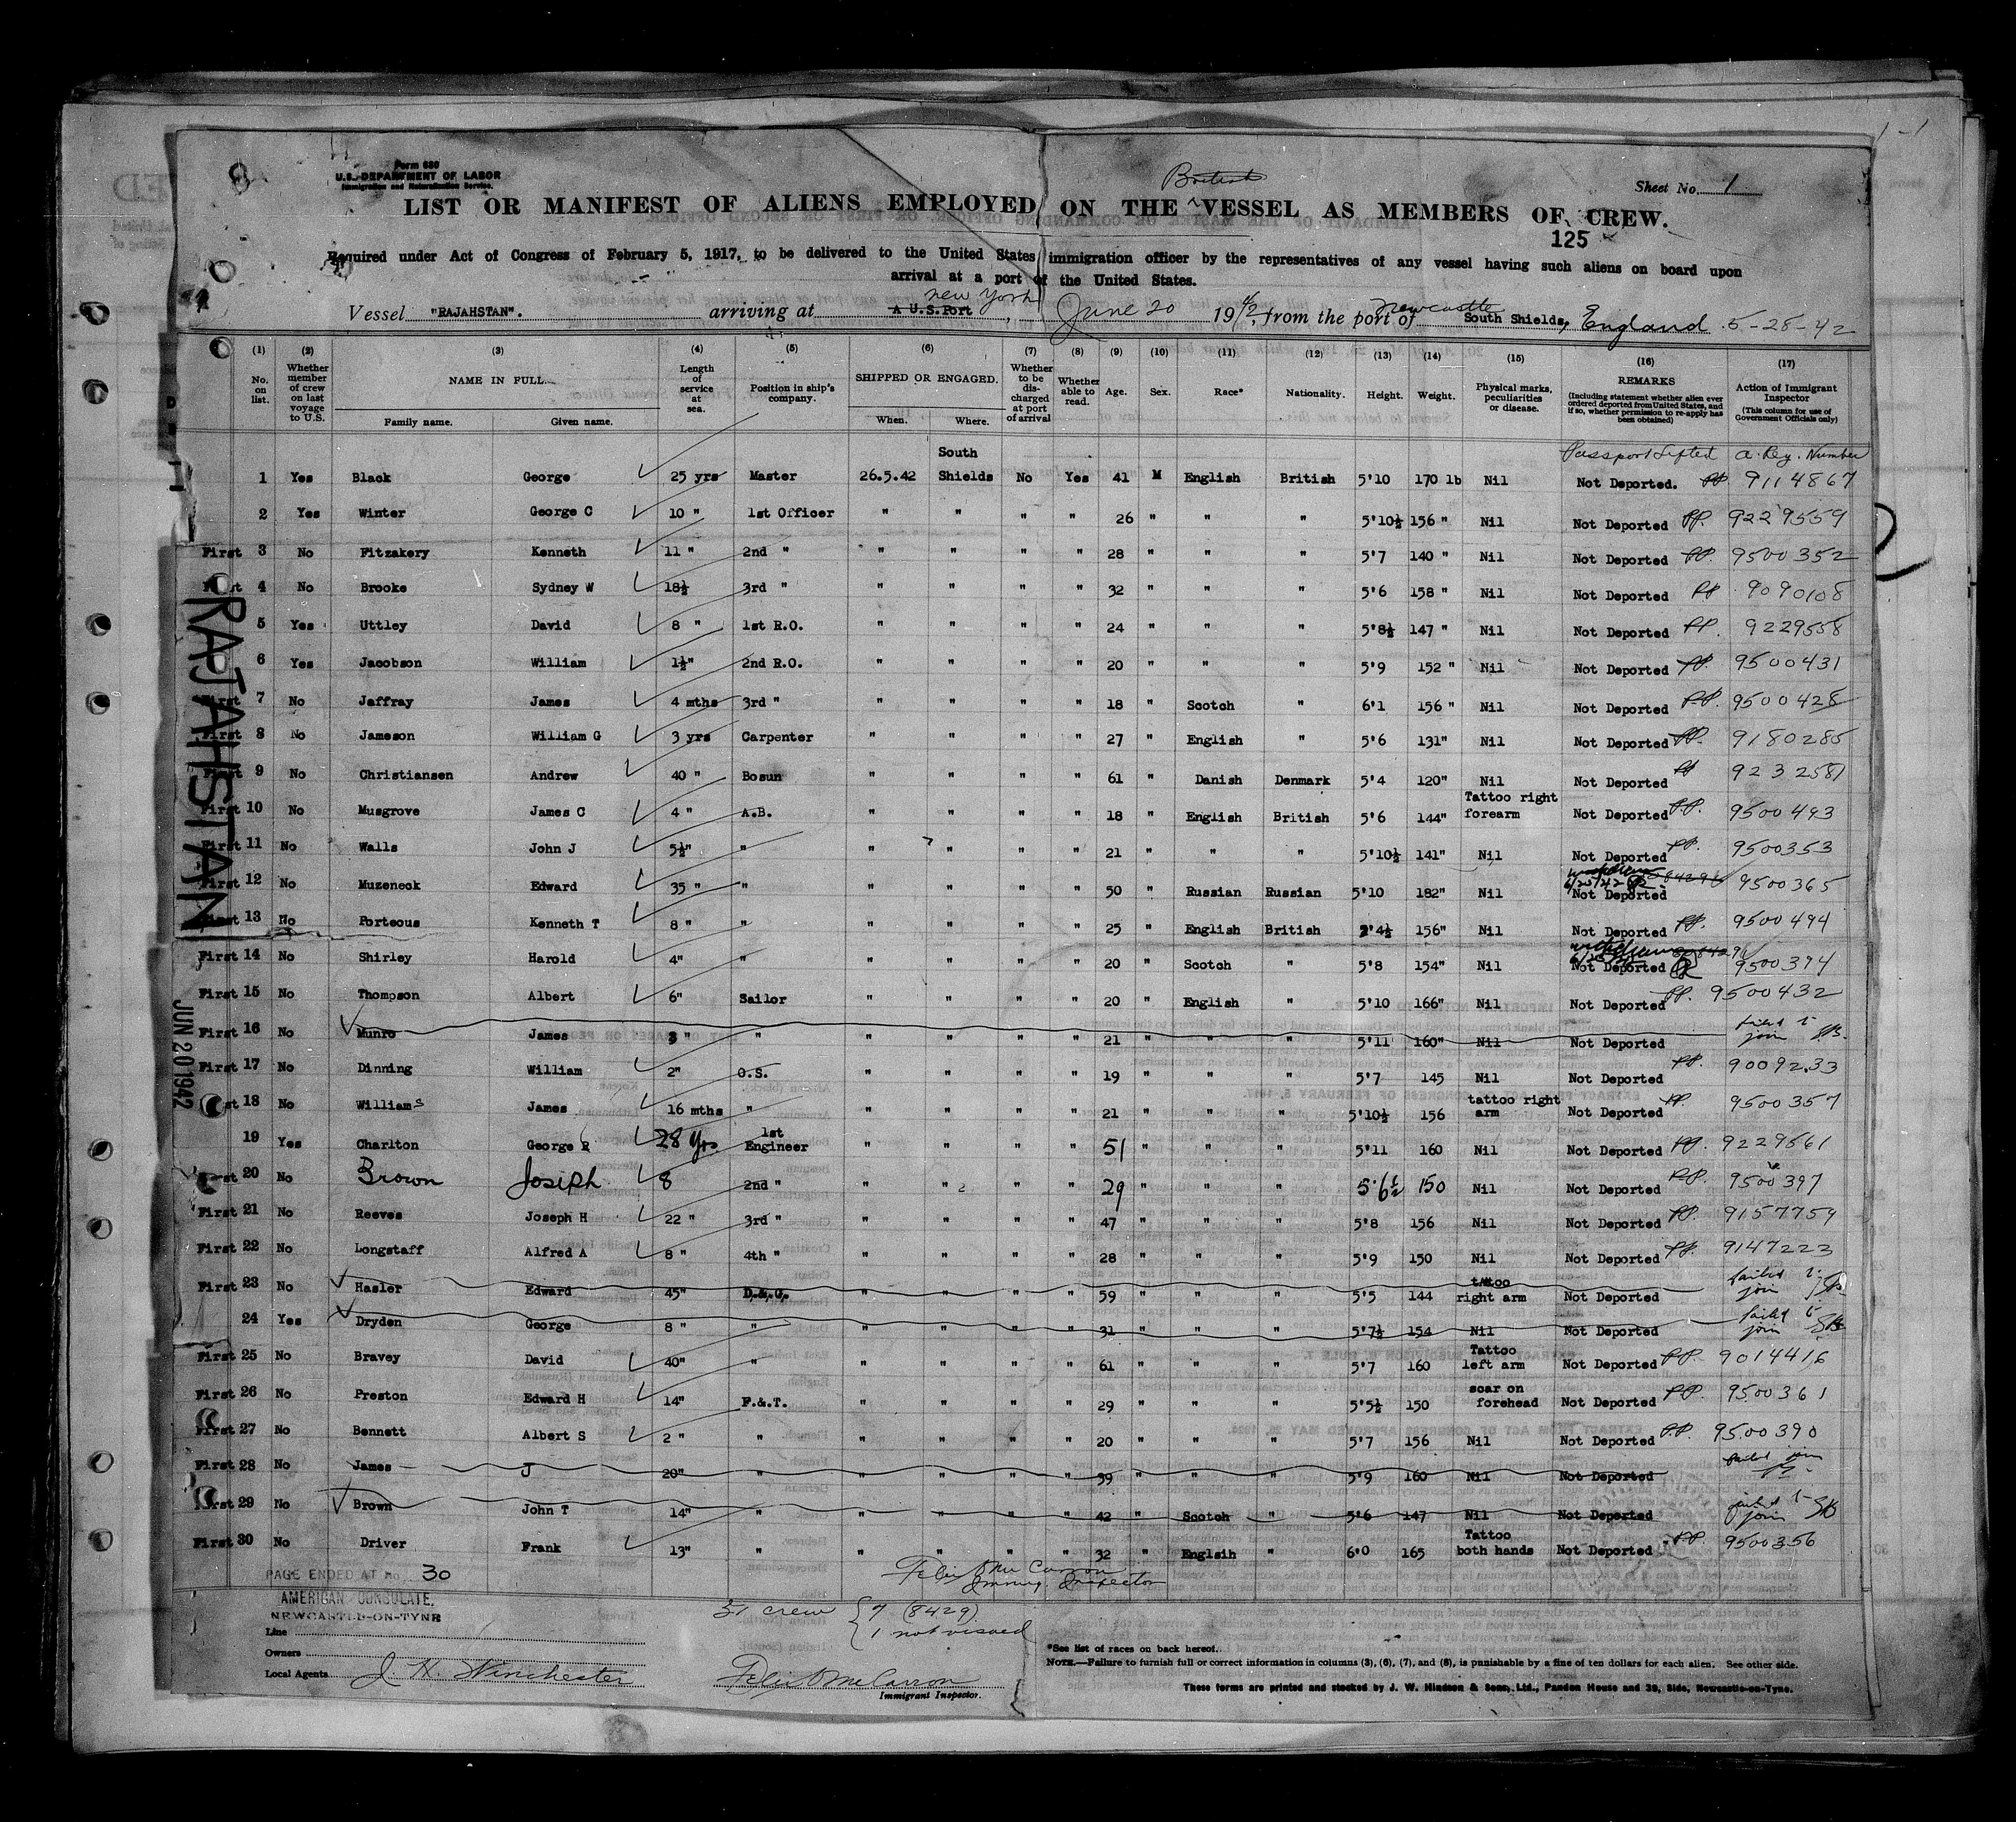 Form 680
U.S. DEPARTMENT OF LABOR
Immigration and Naturalization Service.
Sheet No. 1
British
LIST OR MANIFEST OF ALIENS EMPLOYED ON THE VESSEL AS MEMBERS OF CREW.
125
Required under Act of Congress of February 5, 1917, to be delivered to the United States immigration officer by the representatives of any vessel having such aliens on board upon
arrival at a port of the United States.
Vessel "RAJAHSTAN". arriving at A U.S.Port new York, June 20 1942, from the port of Newcastle South Shields, England 5-28-42
(1) (2) (3) (4) (5) (6) (7) (8) (9) (10) (11) (12) (13) (14) (15) (16) (17)
No. on list. Whether member of crew on last voyage to U.S. NAME IN FULL. Length of service at sea. Position in ship's company. SHIPPED OR ENGAGED. Whether to be discharged at port of arrival Whether able to read. Age. Sex. Race* Nationality. Height. Weight. Physical marks, peculiarities or disease. REMARKS (Including statement whether alien ever ordered deported from United States, and if so, whether permission to re-apply has been obtained) Action of Immigrant Inspector (This column for use of Government Officials only)
Family name. Given name. When. Where.
Passport Lifted a. Reg. Number
1 Yes Black George 25 yrs Master 26.5.42 South Shields No Yes 41 M English British 5'10 170 lb Nil Not Deported. PP 9114867
2 Yes Winter George C 10 " 1st Officer " " " " 26 " " " 5'10½ 156 " Nil Not Deported PP. 9229559
First 3 No Fitzakery Kenneth 11 " 2nd " " " " " 28 " " " 5'7 140 " Nil Not Deported PP. 9500352
First 4 No Brooke Sydney W 18½ 3rd " " " " " 32 " " " 5'6 158 " Nil Not Deported PP 9090108
5 Yes Uttley David 8 " 1st R.O. " " " " 24 " " " 5'8½ 147 " Nil Not Deported PP. 9229558
6 Yes Jacobson William 1½" 2nd R.O. " " " " 20 " " " 5'9 152 " Nil Not Deported PP. 9500431
First 7 No Jaffray James 4 mths 3rd " " " " " 18 " Scotch " 6'1 156 " Nil Not Deported PP. 9500428
First 8 No Jameson William G 3 yrs Carpenter " " " " 27 " English " 5'6 131" Nil Not Deported PP. 9180285
First 9 No Christiansen Andrew 40 " Bosun " " " " 61 " Danish Denmark 5'4 120" Nil Not Deported PP 9232581
First 10 No Musgrove James C 4 " A.B. " " " " 18 " English British 5'6 144" Tattoo right forearm Not Deported PP. 9500493
First 11 No Walls John J 5½" " " " " " 21 " " " 5'10½ 141" Nil Not Deported PP. 9500353
First 12 No Muzeneck Edward 35 " " " " " " 50 " Russian Russian 5'10 182" Nil 6/20/42 Not Deported 9500365
First 13 No Porteous Kenneth T 8 " " " " " " 25 " English British 5'4½ 156" Nil Not Deported PP. 9500494
First 14 No Shirley Harold 4" " " " " " 20 " Scotch " 5'8 154" Nil Not Deported 9500394
First 15 No Thompson Albert 6" Sailor " " " " 20 " English " 5'10 166" Nil Not Deported PP. 9500432
First 16 No Munro James 3 " " " " " " 21 " " " 5'11 160" Nil Not Deported failed to join
First 17 No Dinning William 2" O.S. " " " " 19 " " " 5'7 145 Nil Not Deported PP. 9009233
First 18 No Williams James 16 mths " " " " " 21 " " " 5'10½ 156 tattoo right arm Not Deported PP. 9500357
19 Yes Charlton George R 28 Yrs 1st Engineer " " " " 51 " " " 5'11 160 Nil Not Deported PP. 9229561
First 20 No Brown Joseph 8 2nd " " " " " 29 " " " 5'6½ 150 Nil Not Deported PP. 9500397
First 21 No Reeves Joseph H 22 " 3rd " " " " " 47 " " " 5'8 156 Nil Not Deported PP. 9157759
First 22 No Longstaff Alfred A 8 " 4th " " " " " 28 " " " 5'9 150 Nil Not Deported PP. 9147223
First 23 No Hasler Edward 45" D.&.G. " " " " 59 " " " 5'5 144 tattoo right arm Not Deported failed to join
24 Yes Dryden George 8 " " " " " " 31 " " " 5'7½ 154 Nil Not Deported failed to join
First 25 No Bravey David 40" " " " " " 61 " " " 5'7 160 Tattoo left arm Not Deported PP. 9014416
First 26 No Preston Edward H 14" F.&.T. " " " " 29 " " " 5'5½ 150 scar on forehead Not Deported PP. 9500361
First 27 No Bennett Albert S 2 " " " " " " 20 " " " 5'7 156 Nil Not Deported PP. 9500390
First 28 No James J 20" " " " " " 39 " " " 5'9 160 Nil Not Deported failed join
First 29 No Brown John T 14" " " " " " 42 " Scotch " 5'6 147 Nil Not Deported failed to join
First 30 No Driver Frank 13" " " " " " 32 " Englsih " 6'0 165 Tattoo both hands Not Deported PP. 9500356
RAJAHSTAN
JUN 20 1942
PAGE ENDED AT No. 30
Immig. Inspector
AMERICAN CONSULATE.
NEWCASTLE-ON-TYNE
31 crew 7 (8429)
1 not visaed
Line
Owners
Local Agents J. H. Winchester
Immigrant Inspector.
*See list of races on back hereof.
NOTE.—Failure to furnish full or correct information in columns (3), (6), (7), and (8), is punishable by a fine of ten dollars for each alien. See other side.
These forms are printed and stocked by J. W. Hindson & Sons, Ltd., Pandon House and 39, Side, Newcastle-on-Tyne.